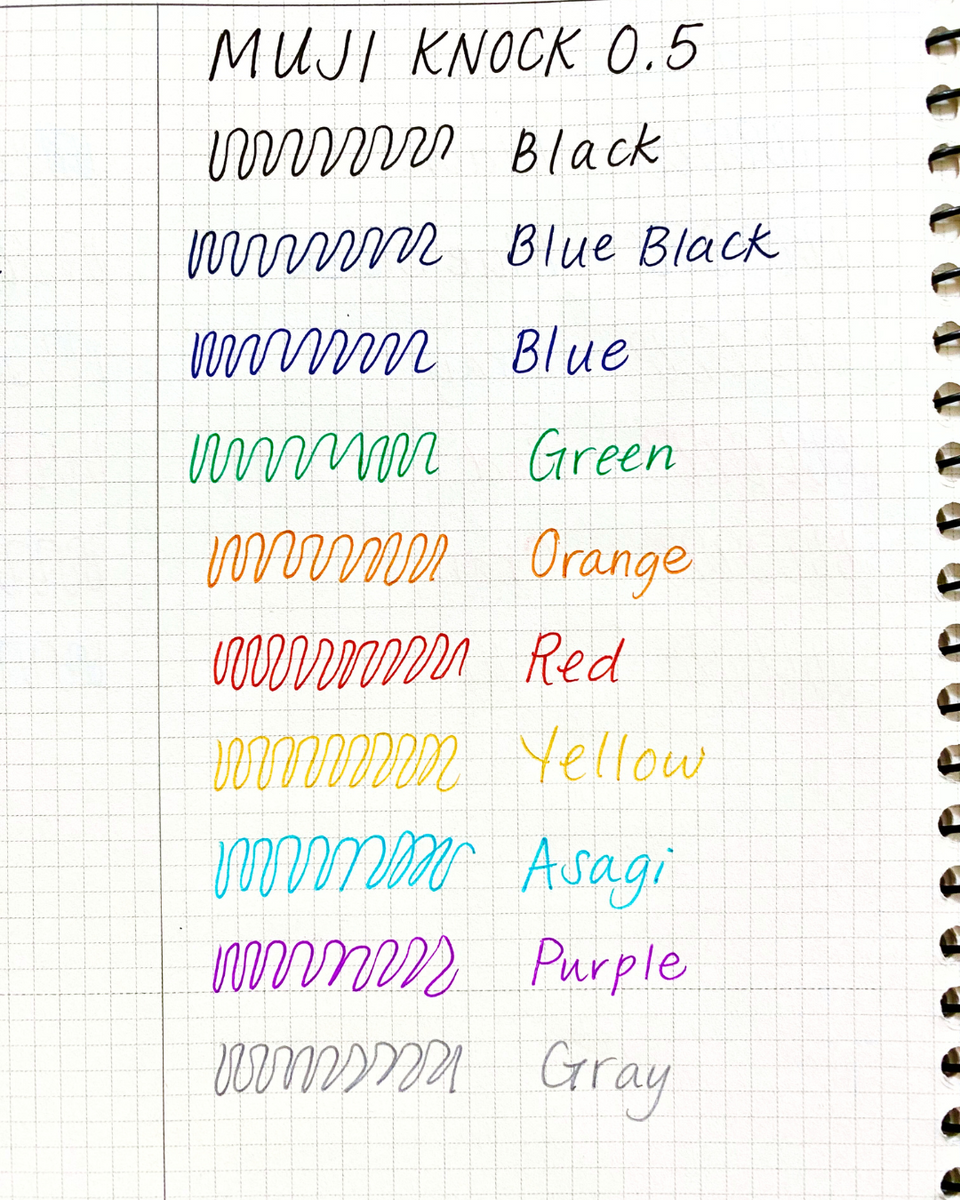 MUJI KNOCK 0.5
Black
Blue Black
Blue
Green
Orange
Red
Yellow
Asagi
Purple
Gray